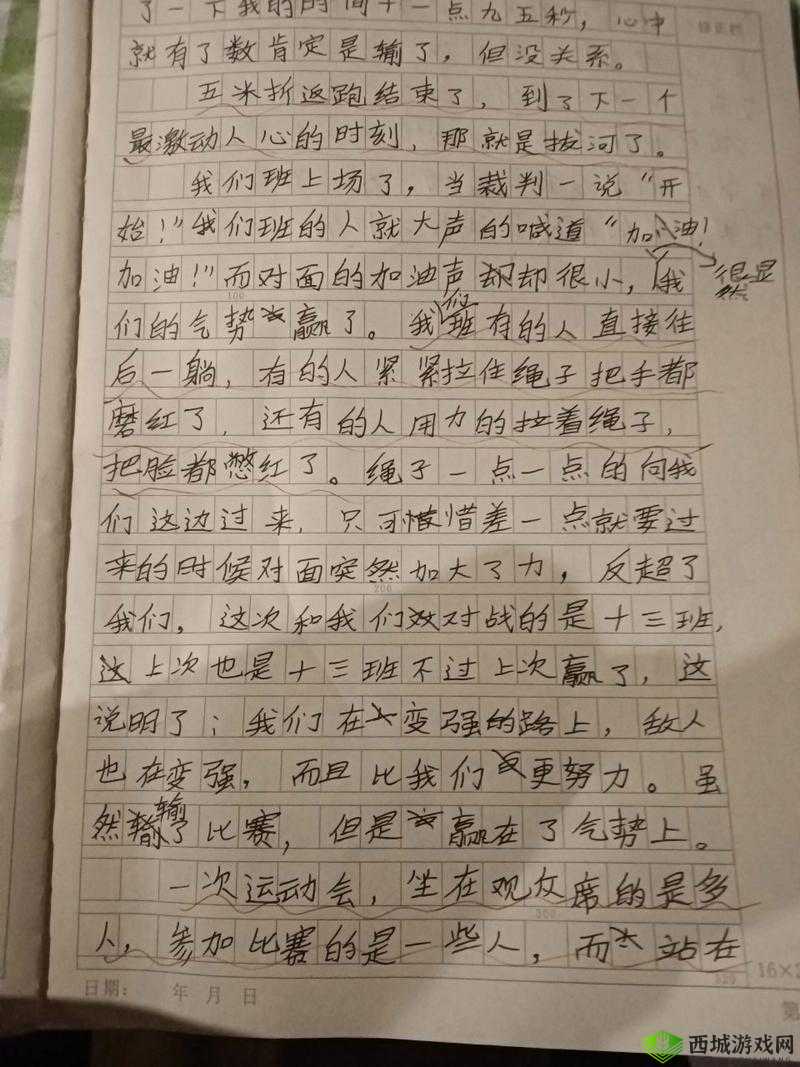 了一下我的时间十一点九五秒，心中
就有了数肯定是输了，但没关系。
五米折返跑结束了，到了下一个
最激动人心的时刻，那就是拔河了。
我们班上场了，当裁判一说“开
始！”我们班的人就大声的喊道“加油！
加油！”而对面的加油声却很小，很显然我
们的气势赢了。我们班有的人直接往
后一躺，有的人紧紧拉住绳子把手都
磨红了，还有的人用力的拉着绳子，
把脸都憋红了。绳子一点一点的向我
们这边过来，只可惜差一点就要过
来的时候对面突然加大了力，反超了
我们，这次和我们对战的是十三班，
上次也是十三班不过上次赢了，这
说明了；我们在变强的路上，敌人
也在变强，而且比我们更努力。虽
然输了比赛，但是赢在了气势上。
一次运动会，坐在观众席的是多
人，参加比赛的是一些人，而站在
日期： 年 月 日
16×
第
西城游戏网